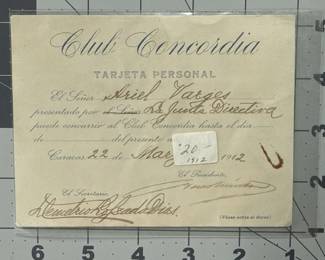 Club Concordia
TARJETA PERSONAL
El Señor Ariel Varges
presentado por el Señor La Junta Directiva
puede concurrir al Club Concordia hasta el día
de del presente
Caracas 22 de 1912
20-
1912
El Secretario, El Presidente,
(Véase notas al dorso)
6 5 4 3 2 1